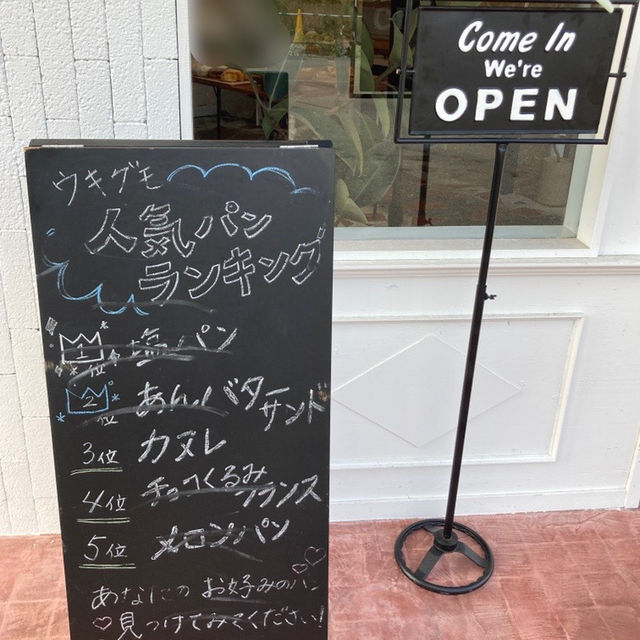 Come In
We're
OPEN
ウキグモ
人気パン
ランキング
1位 塩パン
2位 あんバターサンド
3位 カヌレ
4位 チョコくるみフランス
5位 メロンパン
あなたの お好みのパン
♡見つけてみてください!